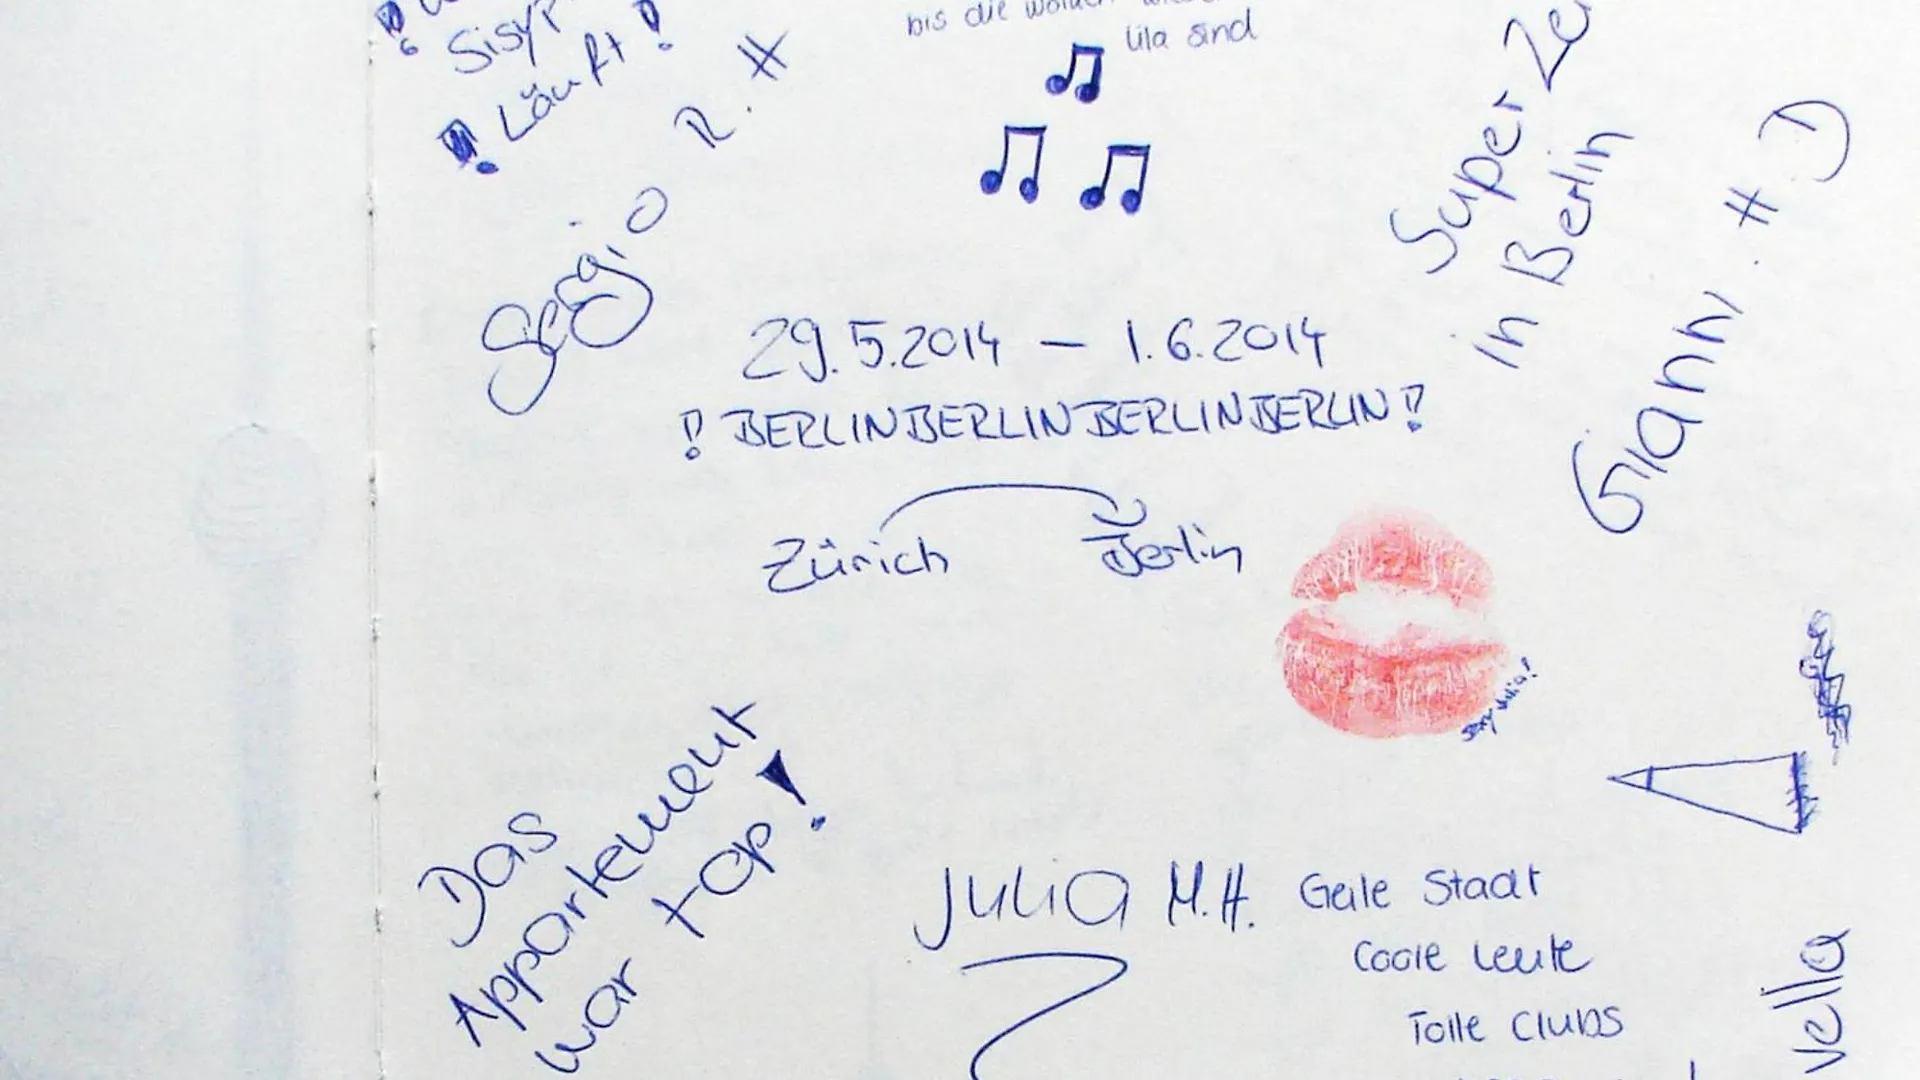 Läuft!
bis die
lila sind
Sergio R. H
Super
in Berlin
Giann. H :D
29.5.2014 – 1.6.2014
! BERLINBERLINBERLINBERLIN!
Zürich Berlin
by Julia!
Das
Appartement
war top!
Julia M.H.
Geile Stadt
Coole Leute
Tolle Clubs
vella